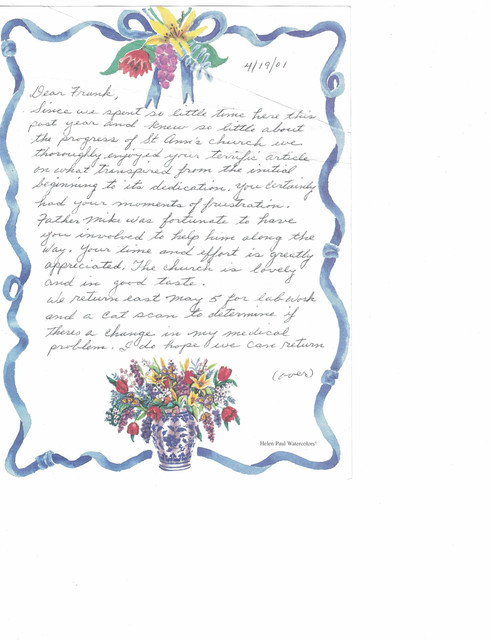 4/19/01
Dear Frank,
Since we spent so little time here this
past year and knew so little about
the progress of St Ann's church we
thoroughly enjoyed your terrific article
on what transpired from the initial
beginning to its dedication. You certainly
had your moments of frustration.
Father Mike was fortunate to have
you involved to help him along the
way. Your time and effort is greatly
appreciated. The church is lovely
and in good taste.
We return east May 5 for lab work
and a cat scan to determine if
theres a change in my medical
problem. I do hope we can return
(over)
Helen Paul Watercolors®